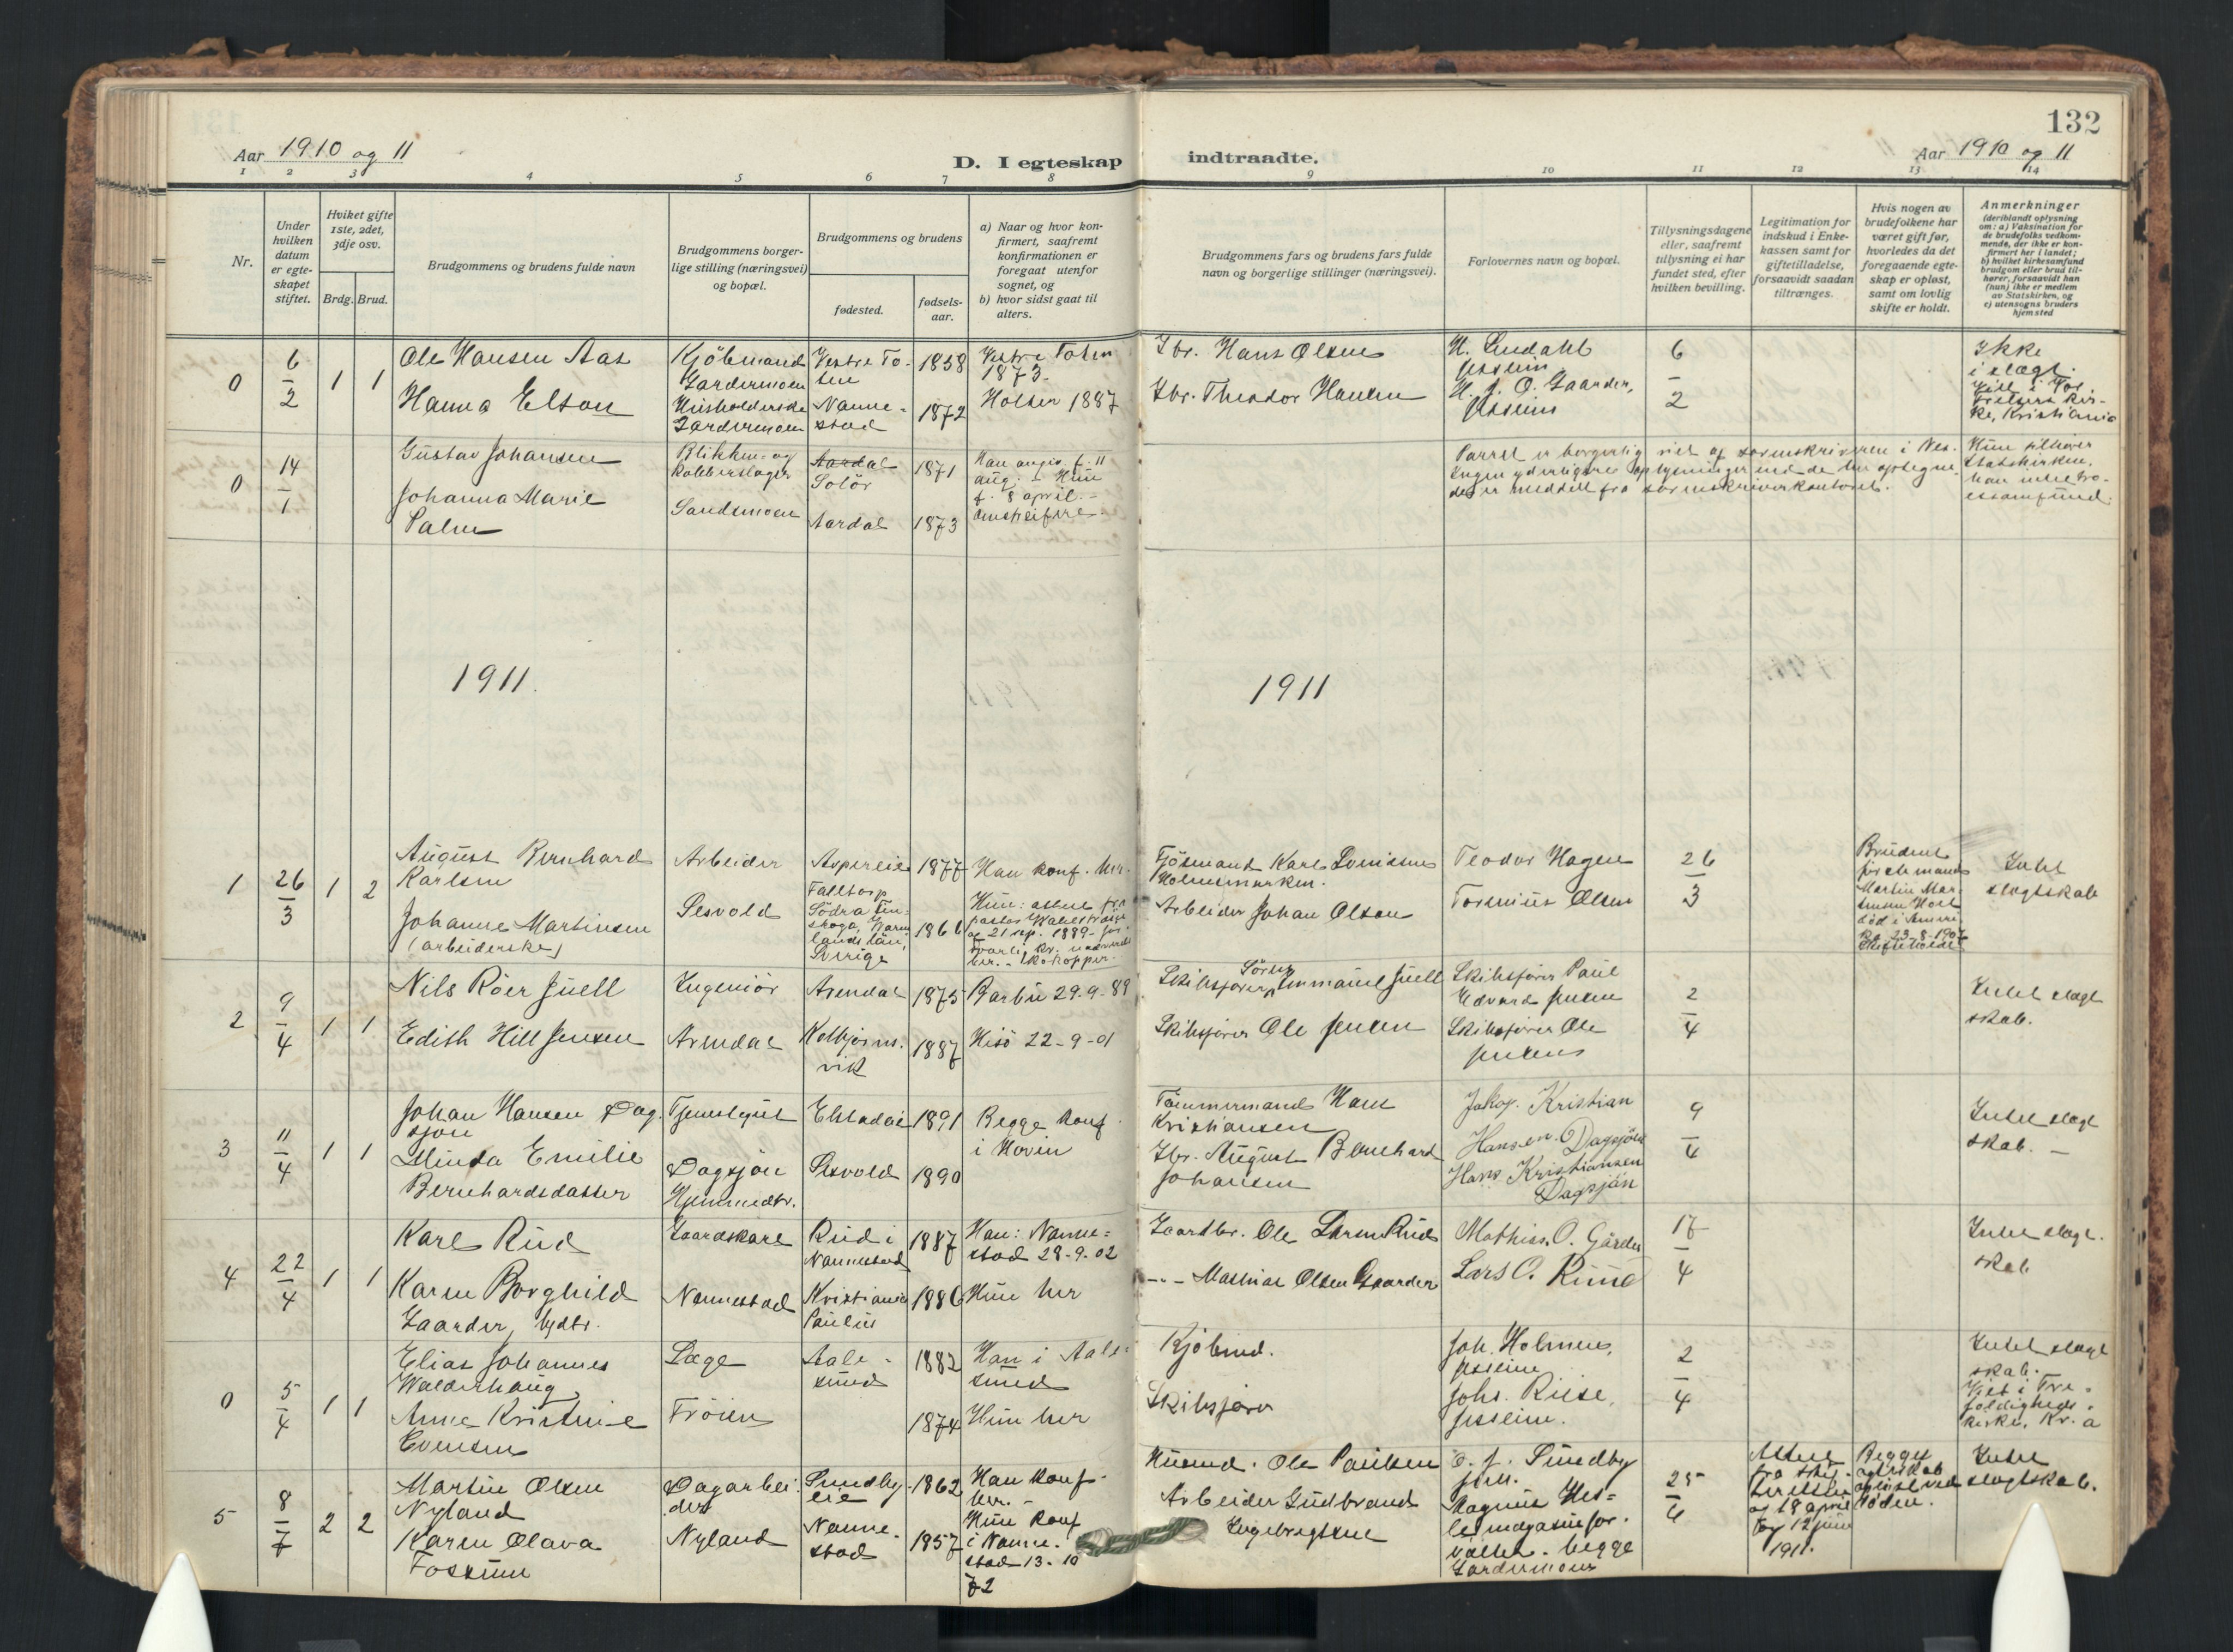 132
Aar 1910 og 11
D. I egteskap indtraadte.
Aar 1910 og 11
1 2 3 4 5 6 7 8 9 10 11 12 13 14
Nr.
Under
hvilken
datum
er egte-
skapet
stiftet.
Hviket gifte
1ste, 2det,
3dje osv.
Brdg. Brud.
Brudgommens og brudens fulde navn
Brudgommens borger-
lige stilling (næringsvei)
og bopæl.
Brudgommens og brudens
fødested.
fødsels-
aar.
a) Naar og hvor kon-
firmert, saafremt
konfirmationen er
foregaat utenfor
sognet, og
b) hvor sidst gaat til
alters.
Brudgommens fars og brudens fars fulde
navn og borgerlige stillinger (næringsvei).
Forlovernes navn og bopæl.
Tillysningsdagene
eller, saafremt
tillysning ei har
fundet sted, efter
hvilken bevilling.
Legitimation for
indskud i Enke-
kassen samt for
giftetilladelse,
forsaavidt saadan
tiltrænges.
Hvis nogen av
brudefolkene har
været gift før,
hvorledes da det
foregaaende egte-
skap er opløst,
samt om lovlig
skifte er holdt.
Anmerkninger
(deriblandt oplysning
om: a) Vaksination for
de brudefolks vedkom-
mende, der ikke er kon-
firmert her i landet;
b) hvilket kirkesamfund
brudgom eller brud til-
hører, forsaavidt han
(hun) ikke er medlem
av Statskirken, og
c) utensogns bruders
hjemsted
0
6
2
1 1
Ole Hansen Aas
Hanna Elton
Kjöbmand
Gardermoen
Husholderske
Gardermoen
Vestre To-
ten
Nanne-
stad
1858
1872
Vestre Toten
1873.
Holter 1887
Gbr. Hans Olsen
Gbr. Theodor Hansen
H. Lindahl
Jessheim
H. J. O. Gaarder,
Jessheim
6
2
Ikke
i slægt.
Viet i Vor
Frelsers kir-
ke, Kristiania
0
14
1
Gustav Johansen
Johanna Marie
Palm
Blikken- og
kobberslager
Sandsmoen
Aardal
Solör
Aardal
1871
1873
Han angiv. f. 11
aug. - Hun
f. 8 april. -
Parret er borgerlig viet af sorenskriveren i Nes.
Ingen yderligere oplysninger end de her optegne-
de er meddelt fra sorenskriverkontoret.
Hun tilhører
Statskirken,
1911.
1911
1
26
3
1 2
August Bernhard
Karlsen
Johanne Martinsen
(arbeiderske)
Arbeider
Jesvold
Aspereie
Falltorp
Södra Fin-
skoga, Värm
lands län,
Sverige
1877
1866
Han konf. her.
Hun: attest fra
af 21 sep. 1889
her. - Skokopper.
Holmsmarken.
Arbeider Johan Olsen
Teodor Hagen
Torinius Olsen
26
3
Brudens
förste mand
Martin Mar-
tinsen Holt
död i Amre-
ka 23-8-1907
Skifte holdt
Intet
slegtskab
2
9
4
1 1
Nils Röer Juell
Edith Hill Jensen
Ingeniör
Arendal
Arendal
Kolbjörns-
vik
1875
1887
Barbu 29-9-89
Hisö 22-9-01
Skibsförer Sören Immanuel Juell
Skibsförer Ole Jensen
Skibsförer Paul
Edvard Jensen
Skibsförer Ole
Jensen
2
4
Intet slegt
skab.
3
11
4
1 1
Johan Hansen Dag-
sjön
Minda Emilie
Bernhardsdatter
Tjenestgut
Dagsjön
Hjemmedtr.
Elstadeie
Jesvold
1891
1890
Begge konf.
i Hovin
Tömmermand Hans
Kristiansen
Gbr. August Bernhard
Johansen
Jakop Kristian
Hansen Dagsjön
Hans Kristiansen
Dagsjön
9
4
Intet slegt
skab. -
4
22
4
1 1
Karl Rud
Karen Borghild
Gaarder, sydtr.
Gaardskarl
Nannestad
Rud i
Nannestad
Kristiania
Paulus
1887
1886
Han: Nanne-
stad 28-9-02
Hun her
Gaardbr. Ole Larsen Rud
-"- Mathias Olsen Gaarder
Mathias. O. Gårder
Lars O. Ruud
17
4
Intet slegt-
skab
0
5
4
1 1
Elias Johannes
Walderhaug
Anne Kristine
Evensen
Læge
Fröien
Aale-
sund
1882
1874
Han i Aale-
sund
Hun her
Kjöbmd.
Skibsförer
Joh. Holmen,
Jessheim
Johs. Riise,
Jessheim.
2
4
Intet slegt
skab. -
Viet i Tre-
foldigheds-
kirke, Kr.a
5
8
7
2 2
Martin Olsen
Nyland
Karen Olava
Fossum
Dagarbei-
der
Nyland
Sundby
eie
Nanne-
stad
1862
1857
Han konf.
her. -
Hun konf
i Nanne-
stad 13-10
72
Husmd. Ole Paulsen
Arbeider Gudbrand
Ingebregtsen
O. J. Sundby
Magnus Hes-
le magasinfor-
valter - begge
Gardermoen
25
6
Attest
fra skif-
teretten
af 18 april
og 12 juni
1911.
Begges
egteskab
oplöst ved
döden.
Intet
slegtskab.